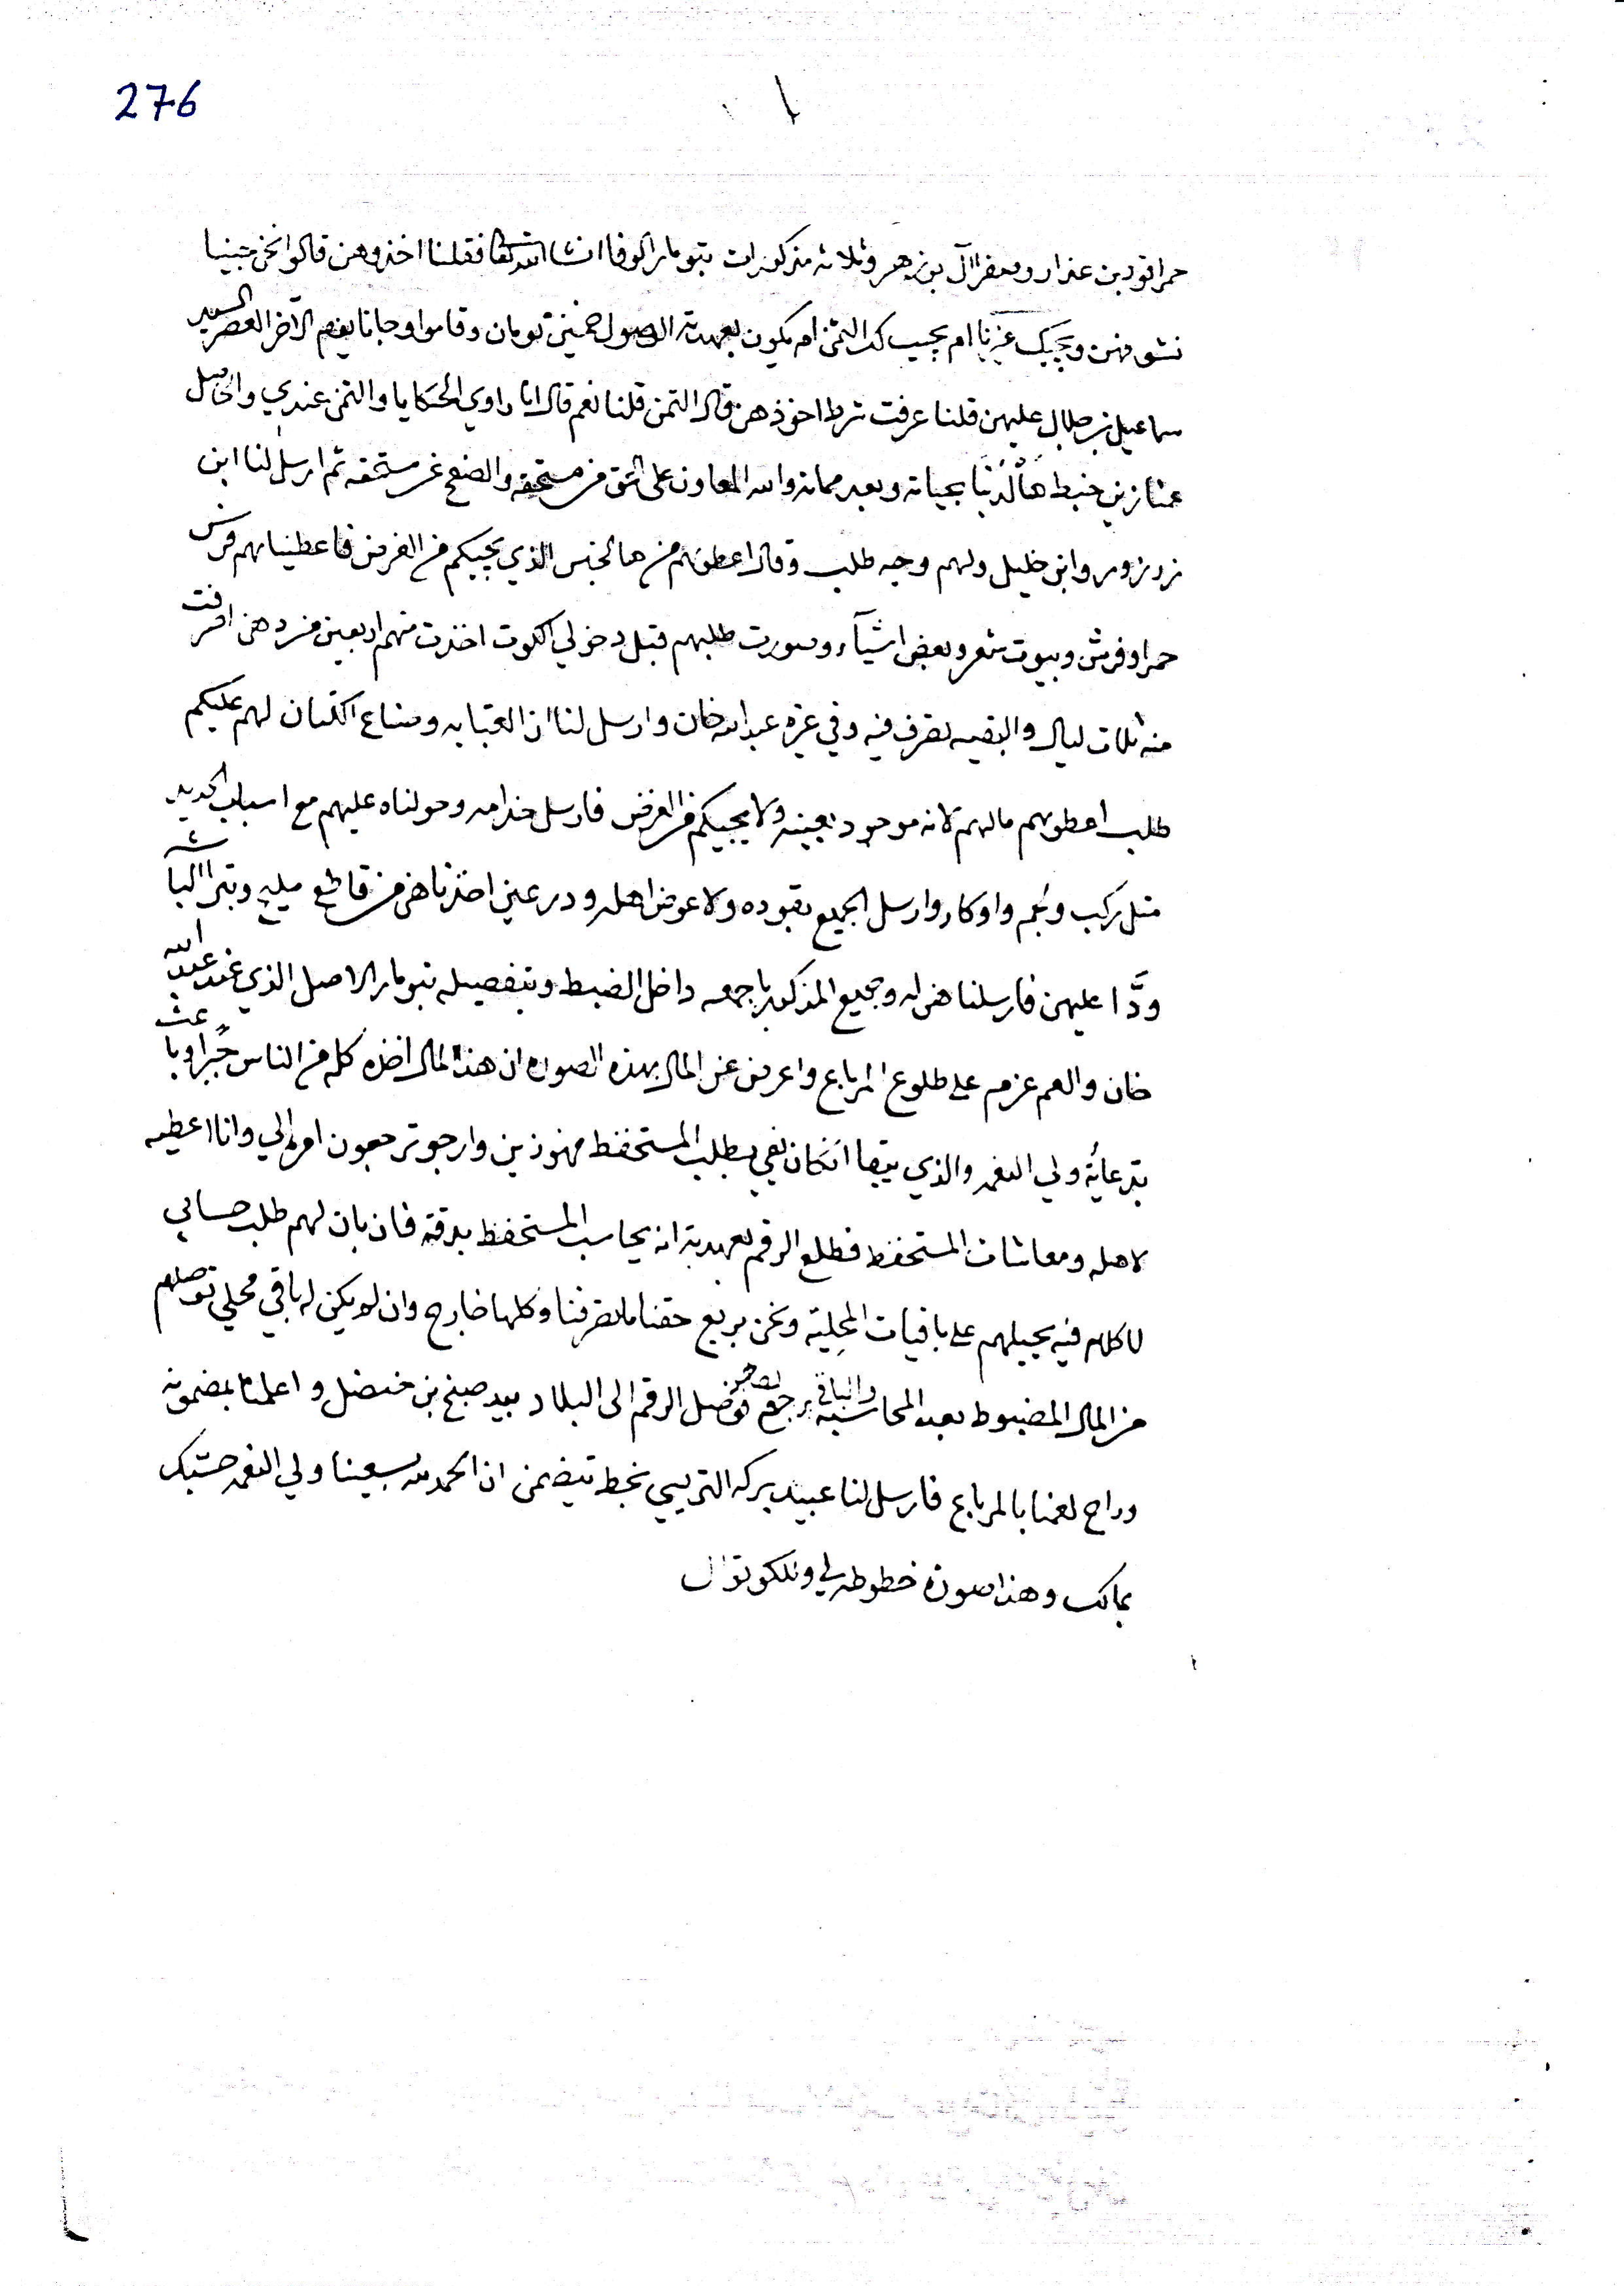 276
حمرا قود بن عذار وصفرا آل بوزهر وثلاثه مذكورات بتومار الوفا انشا الله فقلنا اخذوهن قالوا نحن جبنيا
نشوفهن ويجيك عزيز يا ام يجيب لك الثمن ام يكون بعهدته الوصول خمسين تومان وقاموا وجانا يوم الآخر العصر السيد
سماعيل بن طلال عليهن قلنا عرفت شرط اخوذهن قال الثمن قلنا نعم قال انا راوي الحكايا والثمن عندي والحاصل
عمنا زين ضبط هالدنيا بحياته وبعد مماته والله المعاون على الحق من مستحقه والضع غير مستحقه ثم ارسل لنا ابن
زرزور وابن خليل ولهم وجه طلب وقال اعطوهم من هالجنس الذي يجيكم من الفرض فاعطيناهم فرس
حمرا وفرش وبيوت شعر وبعض اشيآء وصورت طلبهم قبل دخولي الكوت اخذت منهم اربعين من دهن افرقت
منه ثلاث ليال والبقيه تصرف فيه وفي غزه عبد الله خان وارسل لنا ان العتابه وصناع الكتان لهم عليكم
طلب اعطوهم مالهم لانه موجود بعينه ولا يجيكم من الفرض فارسل خدامه وحولناه عليهم مع اسباب الحديد
مثل ركب ولجم واوكار وارسل الجميع بقوده ولا عوض اهله ودرعين اخذناهن من قاطع ميليه وتبرا الباشا
ودَّا عليهن فارسلنا هن له وجميع المذكور باجمعه داخل الضبط وبتفصيله بتومار الاصل الذي عند عبد الله
خان والعم عزم على طلوع المرباع واعرض عن المال بهذه الصوره ان هذا المال اخذه كله من الناس جبرا وباعث
بتدعائة ولي النعمه والذي يبقا انكان يفي بطلب المستحفظ مهنوذين وارجو ترجعون امره الي وانا اعطيه
لاهله ومعاشات المستحفظ فطلع الرقم بعهدته انه يحاسب المستحفظ بدقه فان بان لهم طلب حسابي
لا كلام فيه يحيلهم على باقيات المحلية ونحن بربع حقنا ما تصرفنا وكلها خارج وان لم يكن له باقي محلي توصلهم
من المال المضبوط بعد المحاسبه والباقي يرجع لصاحبه فوصل الرقم الى البلاد بيد صبخ بن خنضل واعلمنا بمضمونه
وراح لعمنا بالمرباع فارسل لنا عبيد بركه التريبي بخط يتضمن ان الحمد لله بسعينا ولي النعمه حسبك
بمالك وهذا صورة خطوطه لي